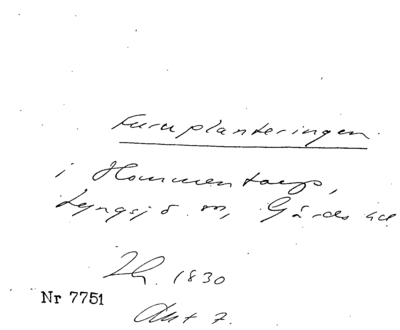 Furuplanteringen.
i Hommentorp,
Lyngsjö sn, Gärds hd
Lh. 1830
Nr 7751
Akt 7.